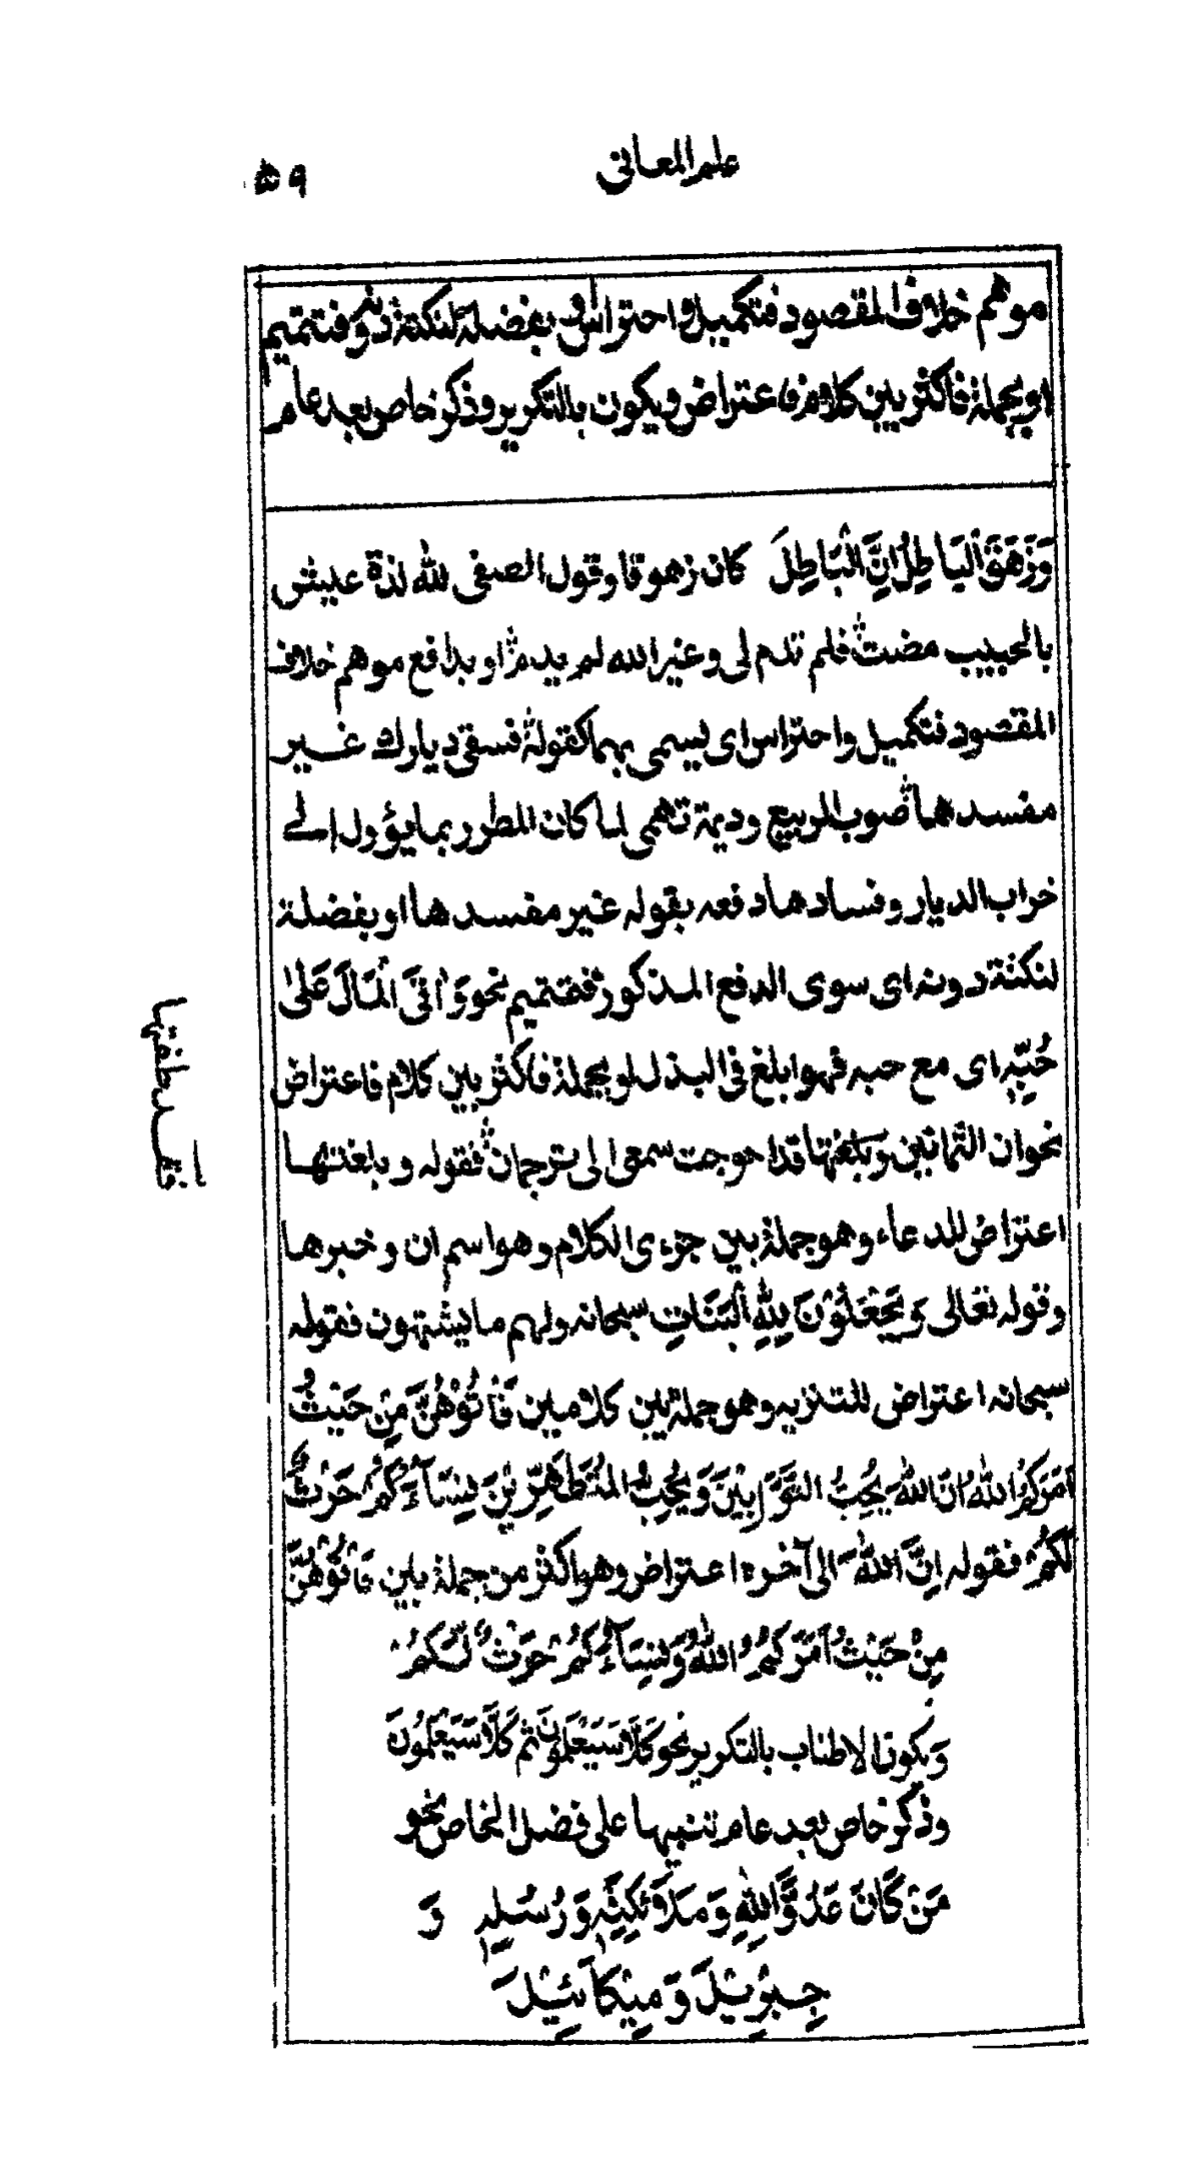 علم المعانی
۵۹
موهم خلاف المقصود فتكميل و احتراس او بفضلة لنكتة دونه فتتميم
او بجملة فاكثر بين كلام فاعتراض ويكون بالتكرير وذكر خاص بعد عام
وَزَهَقَ الْبَاطِلُ اِنَّ الْبَاطِلَ كان زهوقا وقول الصفی لله لذة عيش
بالحبيب مضت فلم تدم لی وغير الله لم يدم او بدافع موهم خلاف
المقصود فتكميل واحتراس ای یسمی بهما كقوله فسقی دیارك غير
مفسدها صوب الربيع وديمة تهمی لما كان المطر ربما يؤول الے
خراب الديار وفسادها دفعه بقوله غير مفسدها او بفضلة
لنكتة دونه ای سوی الدفع المذكور فتتميم نحو وَاٰتَی الْمَالَ عَلیٰ
حُبِّهٖ ای مع حبه فهو ابلغ فی البذل او بجملة فاكثر بين كلام فاعتراض
نحو ان الثمانين وَبلغتها قد احوجت سمعی الی ترجمان فقوله وبلغتها
اعتراض للدعاء وهو جملة بين جزءی الكلام وهو اسم ان وخبرها
وقوله تعالی وَيَجْعَلُوْنَ لِلّٰهِ الْبَنَاتِ سبحانه ولهم ما يشتهون فقوله
سبحانه اعتراض للتنزيه وهو جملة بين كلامين فَأْتُوْهُنَّ مِنْ حَيْثُ
اَمَرَكُمُ اللّٰهُ اِنَّ اللّٰهَ يُحِبُّ التَّوَّابِيْنَ وَيُحِبُّ الْمُتَطَهِّرِيْنَ نِسَآءُكُمْ حَرْثٌ
لَّكُمْ فقوله اِنَّ اللّٰهَ الی آخره اعتراض وهو اكثر من جملة بين فَأْتُوْهُنَّ
مِنْ حَيْثُ اَمَرَكُمُ اللّٰهُ وَنِسَآءُكُمْ حَرْثٌ لَّكُمْ
وَيكون الاطناب بالتكرير نحو كَلَّا سَيَعْلَمُوْنَ ثم كَلَّا سَيَعْلَمُوْنَ
وذكر خاص بعد عام تنبيها علی فضل الخاص نحو
مَنْ كَانَ عَدُوًّا لِلّٰهِ وَمَلٰٓئِكَتِهٖ وَرُسُلِهٖ وَ
جِبْرِيْلَ وَمِيْكَآئِيْلَ